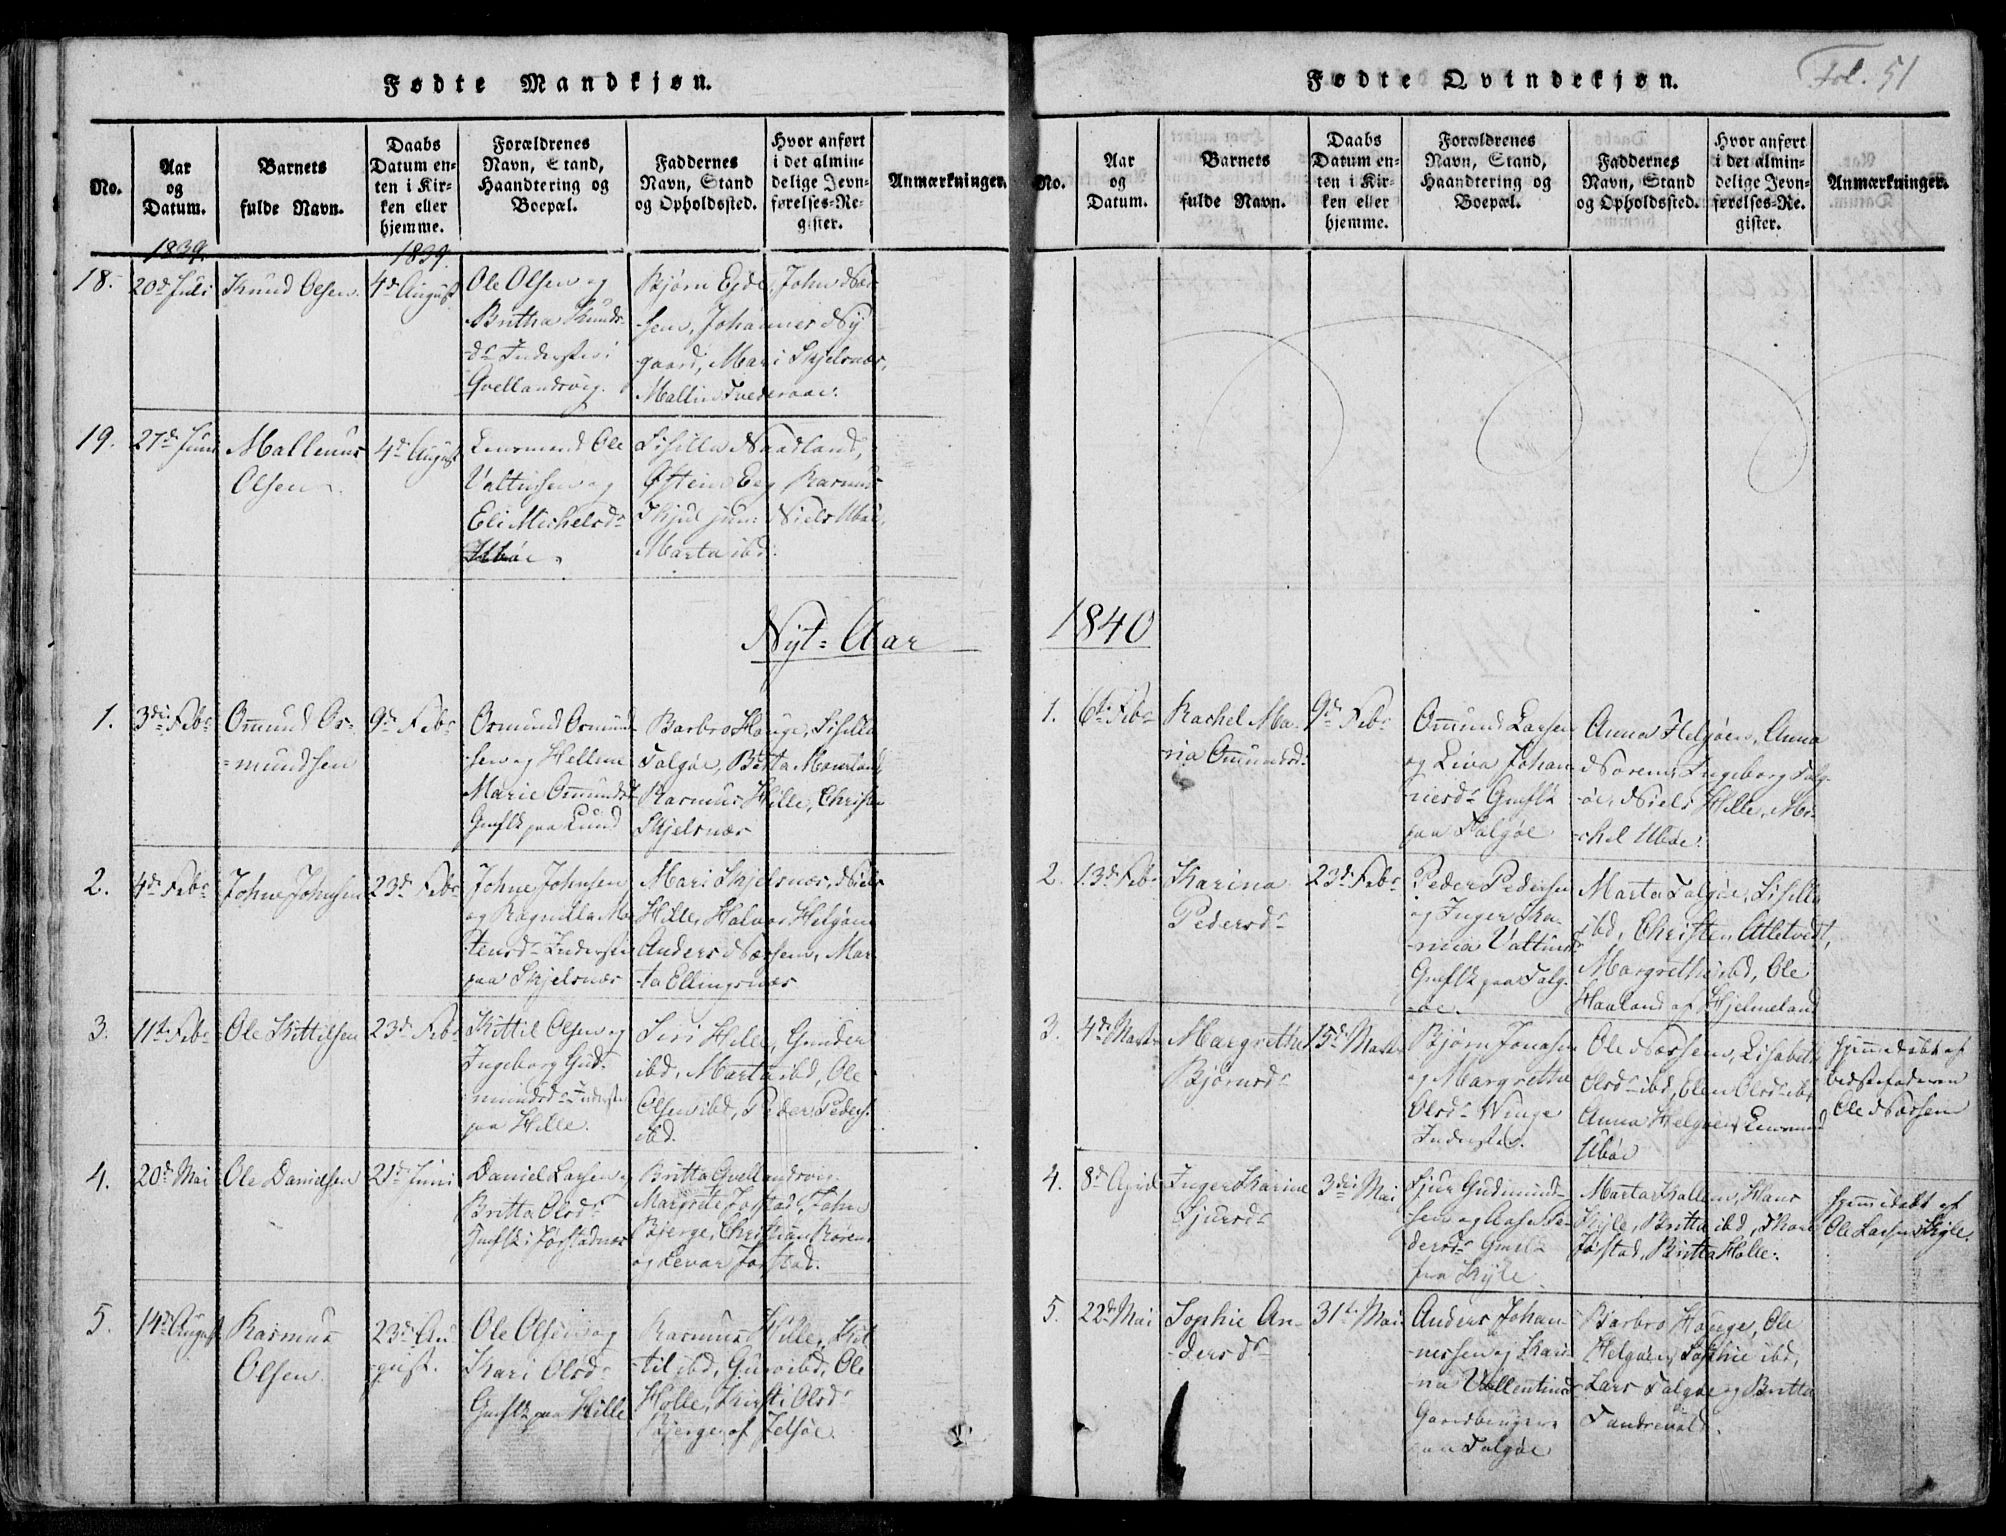 Fødte Mandkjøn.
No.
Aar
og
Datum.
Barnets
fulde Navn.
Daabs
Datum en-
ten i Kir-
ken eller
hjemme.
Forældrenes
Navn, Stand,
Haandtering og
Boepæl.
Faddernes
Navn, Stand
og Opholdssted.
Hvor anført
i det almin-
delige Jevn-
førelses-Re-
gister.
Anmærkninger.
1839.
1839.
18.
20d Juli
Knud Olsen
4d August
Ole Olsen og
Britha Knuds-
dr Inderster i
Qvellandsvig.
Bjørn Eide, John Næs-
sen, Johannes Ny
gaard, Mari Skjelsnæs,
Mallin
19.
27d Juni
Mallenus
Olsen
4d August
Lensmand Ole
Valtinsen og
Eli Michelsdr
Ubøe
Sisilla Naadland,
Østein Eeg Rasmus
Skjul jun: Niels Ubøe,
Marta ibd:
Nyt-Aar
1.
3die Febr
Omund Os-
=mundsen
9d Febr
Osmund Osmund
sen og Hellene
Marie Omundsd
Gmfk paa Lund
Barbro Houge, Sisilla
Talgøe, Berta Mourland
Rasmus Hille, Christen
Skjelsnæs
2.
4d Febr
Johne Johnsen
23d Febr
Johne Johnsen
og Ragnilla Mo
tensdr Inderster
paa Skjelsnæs
Mari Skjelsnæs, Niels
Hille, Halvor Helgøen
Anders Næssen, Mar
ta Ellingsnæs
3.
11te Febr
Ole Kittilsen
23d Febr
Kittil Olsen og
Ingeborg Gud-
mundsdr Inderster
paa Hille.
Siri Hille, Gunder
ibd, Marta ibd, Ole
Olsen ibd, Peder Peders.
ibd.
4.
20d Mai
Ole Danielsen
21d Juni
Daniel Larsen og
Britta Olsdr
Gmfk i Jøstadnæs
Britta Qvellandsvig
Margrete Jøstad, John
Bjerge, Christian Røren
og Levar Jøstad.
5.
14d August
Rasmus
Olsen.
23d Au
-gust.
Ole Olsen og
Kari Olsdr
Gmfk paa Hille
Rasmus Hille, Kit
-til ibd, Guro ibd, Ole
Holle, Kirsti Olsdr
Bjerge af Jelsøe
Fødte Qvindekjøn.
Fol. 51
No.
Aar
og
Datum.
Barnets
fulde Navn.
Daabs
Datum en-
ten i Kir-
ken eller
hjemme.
Forældrenes
Navn, Stand,
Haandtering og
Boepæl.
Faddernes
Navn, Stand
og Opholdssted.
Hvor anført
i det almin-
delige Jevn-
førelses-Re-
gister.
Anmærkninger.
1840
1.
6te Febr
Rachel Ma-
ria Omundsd:
9d Febr
Omund Larsen
og Liva Johan
nesdr Gmfk
paa Talgøe
Anna Helgøen, Anna
Noren, Ingeborg Talg-
øe, Niels Hille, Mi-
chel Ubøe.
2.
13d Febr
Karina
Pedersdr
23d Febr
Peder Pedersen
og Inger Ka-
rina Valtinsdr
Gmfk paa Talg-
øe.
Marta Talgøe, Sisilla
ibd, Christen Atletvedt,
Margrethe ibd, Ole
Haaland af Hjelmeland
3.
4d Marts
Margrethe
Bjørnsdr
15d Marts
Bjørn Jonasen
og Margrethe
Olsdr Winge
Inderster.
Ole Næssen, Lisabeth
Olsdr ibd, Elen Olsdr ibd
Anna Helgøen, Lensmand
Ubøe
hjemedøbt af
bedstefaderen
Ole Næssen
4.
8d April
Inger Karine
Sjursdr
3die Mai
Sjur Gudmund-
sen og Aase Pe-
dersdr Gmfk
fra Kyle
Marta Kallem, Hans
Kyle, Britta ibd,
Jøstad, Britta Holle.
hjemedøbt af
Ole Larsen Kyle.
5.
22d Mai
Sophie An-
dersdr
31te Mai
Anders Johan
nessen og Kari-
na Vallentinsdr
Gaardbruger
paa Talgøe
Barbro Houge, Ole
Helgøen, Sophie ibd,
Lars Talgøe og Britta
Tandrevold.